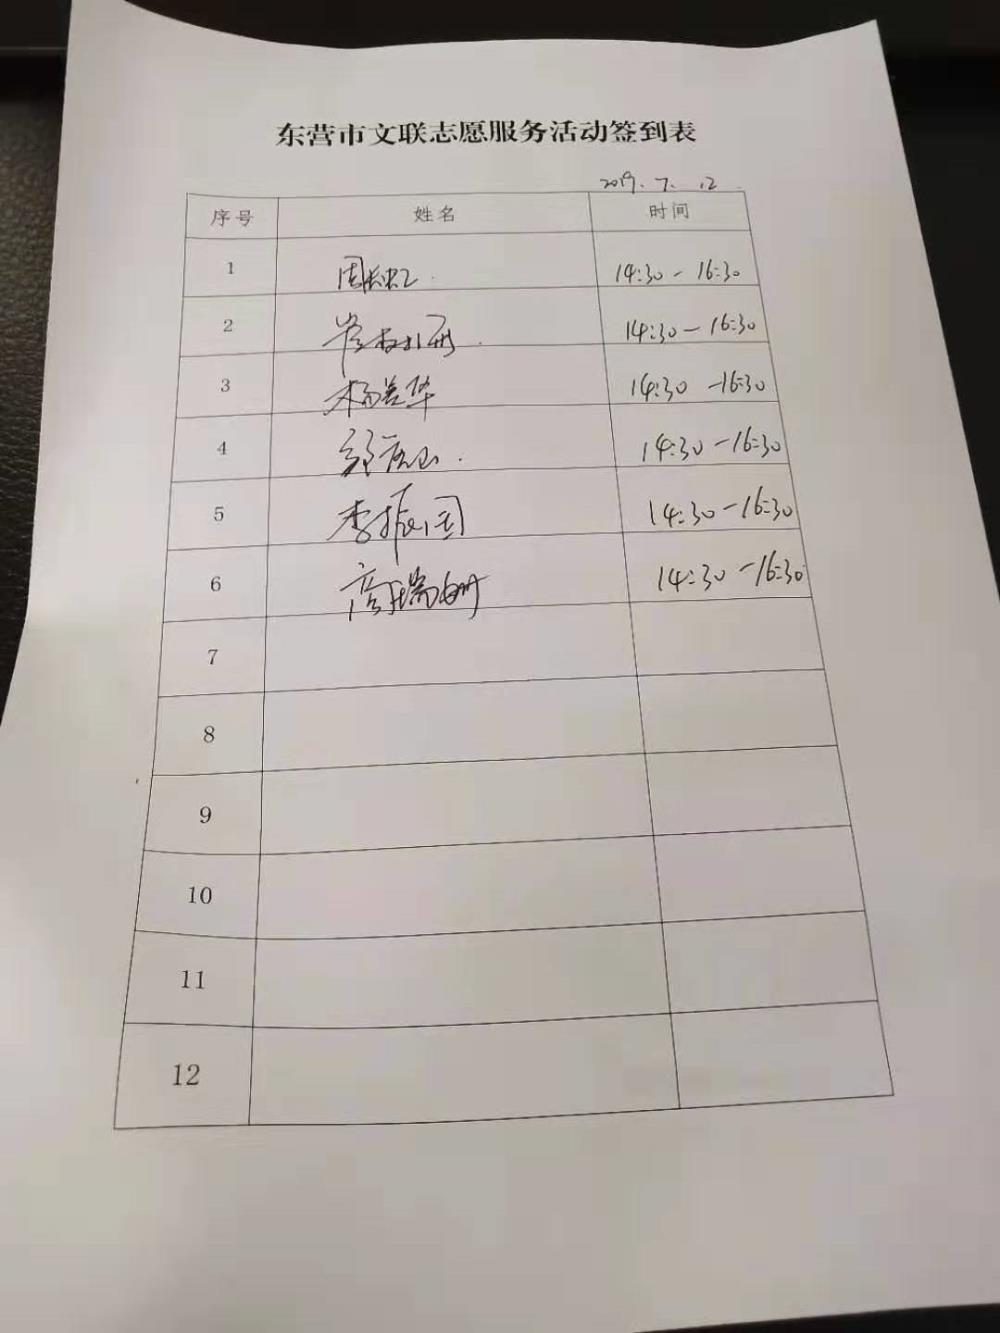 东营市文联志愿服务活动签到表
2019.7.12
序号 姓名 时间
1 周长虹 14:30-16:30
2 14:30-16:30
3 杨兰华 14:30-16:30
4 14:30-16:30
5 李振国 14:30-16:30
6 高瑞姗 14:30-16:30
7
8
9
10
11
12